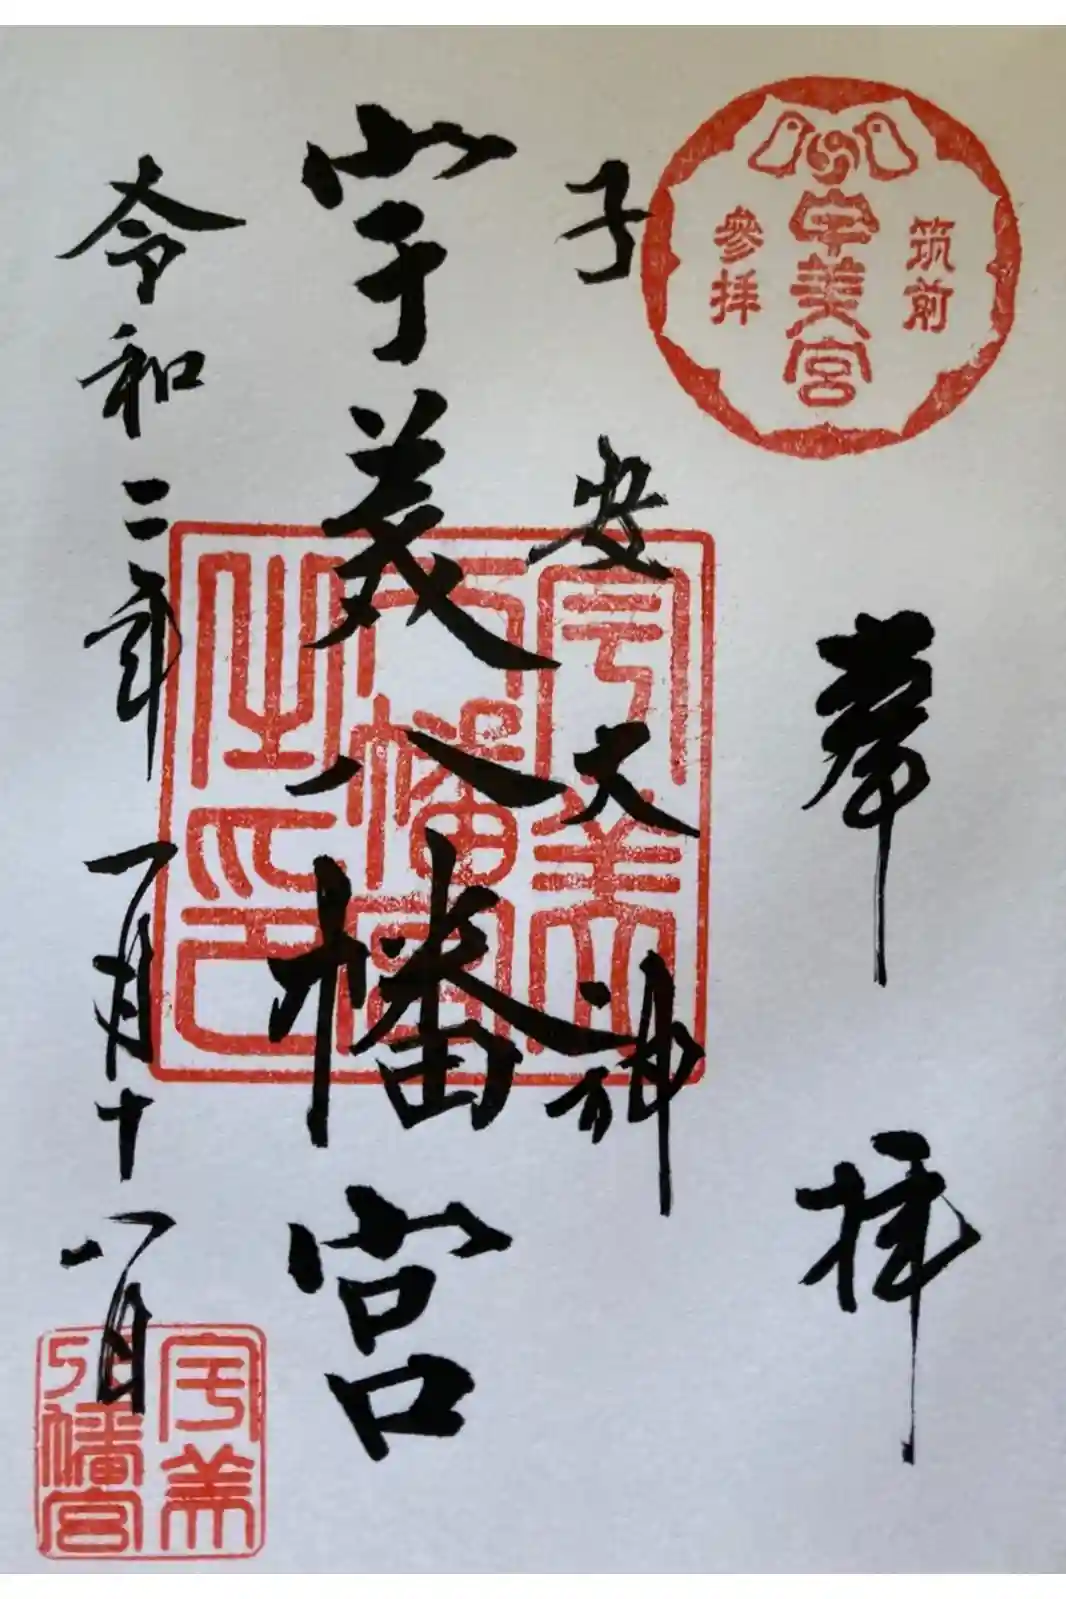 筑前
宇美宮
参拝
奉拝
子安大神
宇美八幡宮
令和二年一月十八日
宇美
八幡宮
之印
宇美
八幡宮